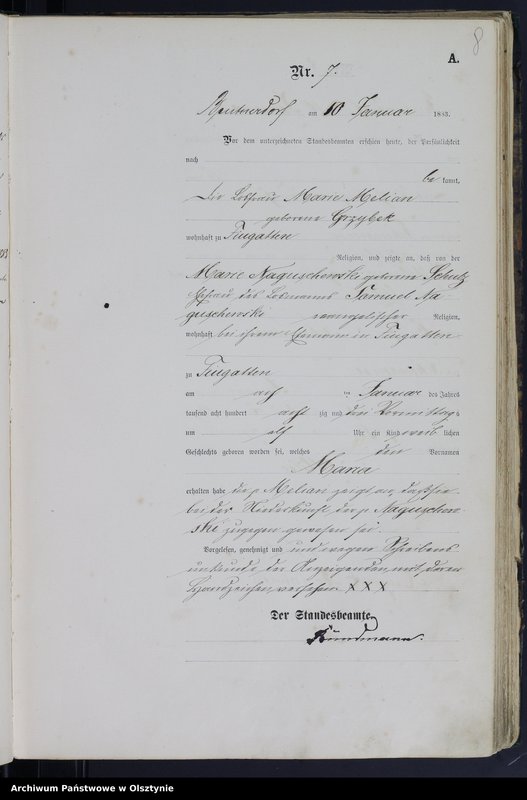 8
A.
Nr. 7.
Reuschwerdorf am 10 Januar 1883.
Vor dem unterzeichneten Standesbeamten erschien heute, der Persönlichkeit
nach
be kannt,
die Losfrau Marie Melian
geborene Grzybek
wohnhaft zu Fiugatten
Religion, und zeigte an, daß von der
Marie Naguschewski geborene Schulz
Ehefrau des Losmanns Samuel Na-
guschewski evangelischer Religion,
wohnhaft bei ihrem Ehemann in Fiugatten
zu Fiugatten
am ten Januar des Jahres
tausend acht hundert acht zig und drei Vormittags
um elf Uhr ein Kind weib lichen
Geschlechts geboren worden sei, welches den Vornamen
Maria
erhalten habe die p. Melian zeigt an, daß sie
bei der Niederkunft der p. Naguschew-
ski zugegen gewesen sei.
Vorgelesen, genehmigt und und wegen Schreibens
unkunde der Anzeigenden mit deren
Handzeichen versehen X X X
Der Standesbeamte
Archiwum Państwowe w Olsztynie